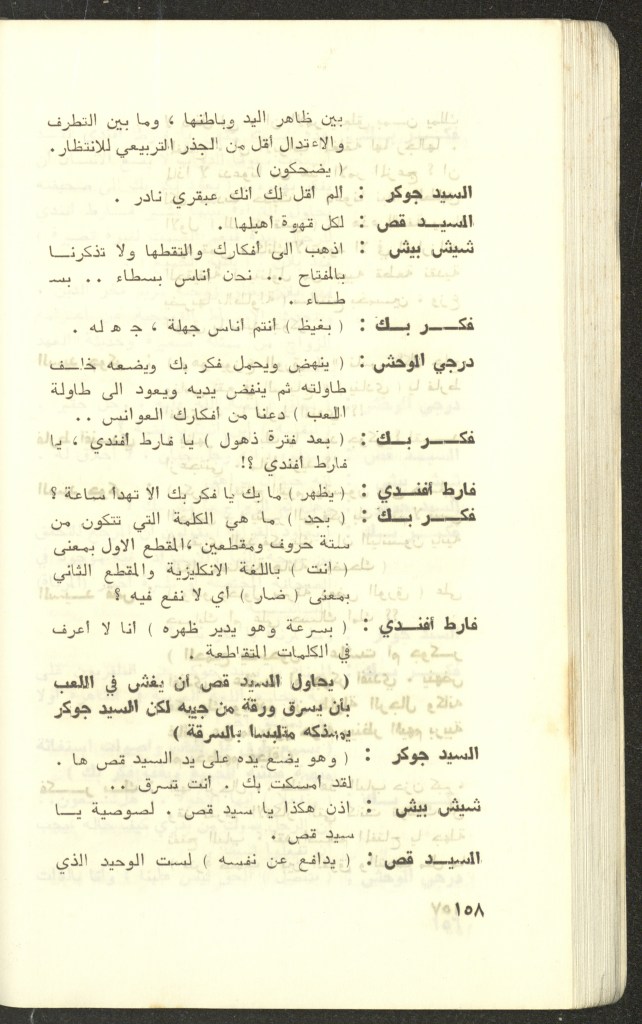 بين ظاهر اليد وباطنها ، وما بين التطرف
والاعتدال أقل من الجذر التربيعي للانتظار.
( يضحكون )
السيد جوكر : الم أقل لك انك عبقري نادر .
السيـد قص : لكل قهوة أهبلها .
شيش بيش : اذهب الى أفكارك والتقطها ولا تذكرنـا
بالمفتاح .. نحن اناس بسطاء .. بسـ
طـاء .
فكـر بـك : ( بغيظ ) انتم اناس جهلة ، جـ هـ له .
درجي الوحش : ( ينهض ويحمل فكر بك ويضعه خلـف
طاولته ثم ينفض يديه ويعود الى طاولة
اللعب ) دعنا من أفكارك العوانس ..
فكـر بـك : ( بعد فترة ذهول ) يا فارط أفندي ، يا
فارط أفندي ؟!
فارط أفنـدي : ( يظهر ) ما بك يا فكر بك الا تهدأ ساعة ؟
فكـر بـك : ( بجد ) ما هي الكلمة التي تتكون من
ستة حروف ومقطعين ،المقطع الاول بمعنى
( انت ) باللغة الانكليزية والمقطع الثاني
بمعنى ( ضار ) أي لا نفع فيه ؟
فارط أفنـدي : ( بسرعة وهو يدير ظهره ) انا لا أعرف
في الكلمات المتقاطعة .
( يحاول السيد قص أن يغش في اللعب
بأن يسرق ورقة من جيبه لكن السيد جوكر
يمسكه متلبسا بالسرقة )
السيد جوكر : ( وهو يضع يده على يد السيد قص ) ها .
لقد أمسكت بك . أنت تسرق ..
شيش بيش : اذن هكذا يا سيد قص . لصوصية يـا
سيد قص .
السيـد قص : ( يدافع عن نفسه ) لست الوحيد الذي
١٥٨